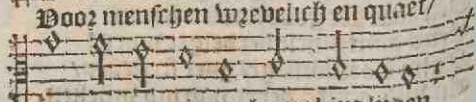 Door menschen wrevelich en quaet/